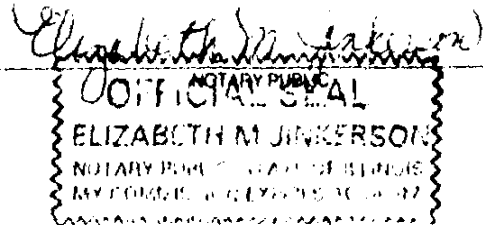 Elizabeth M Jinkerson
NOTARY PUBLIC
OFFICIAL SEAL
ELIZABETH M JINKERSON
NOTARY PUBLIC STATE OF ILLINOIS
MY COMMISSION EXPIRES